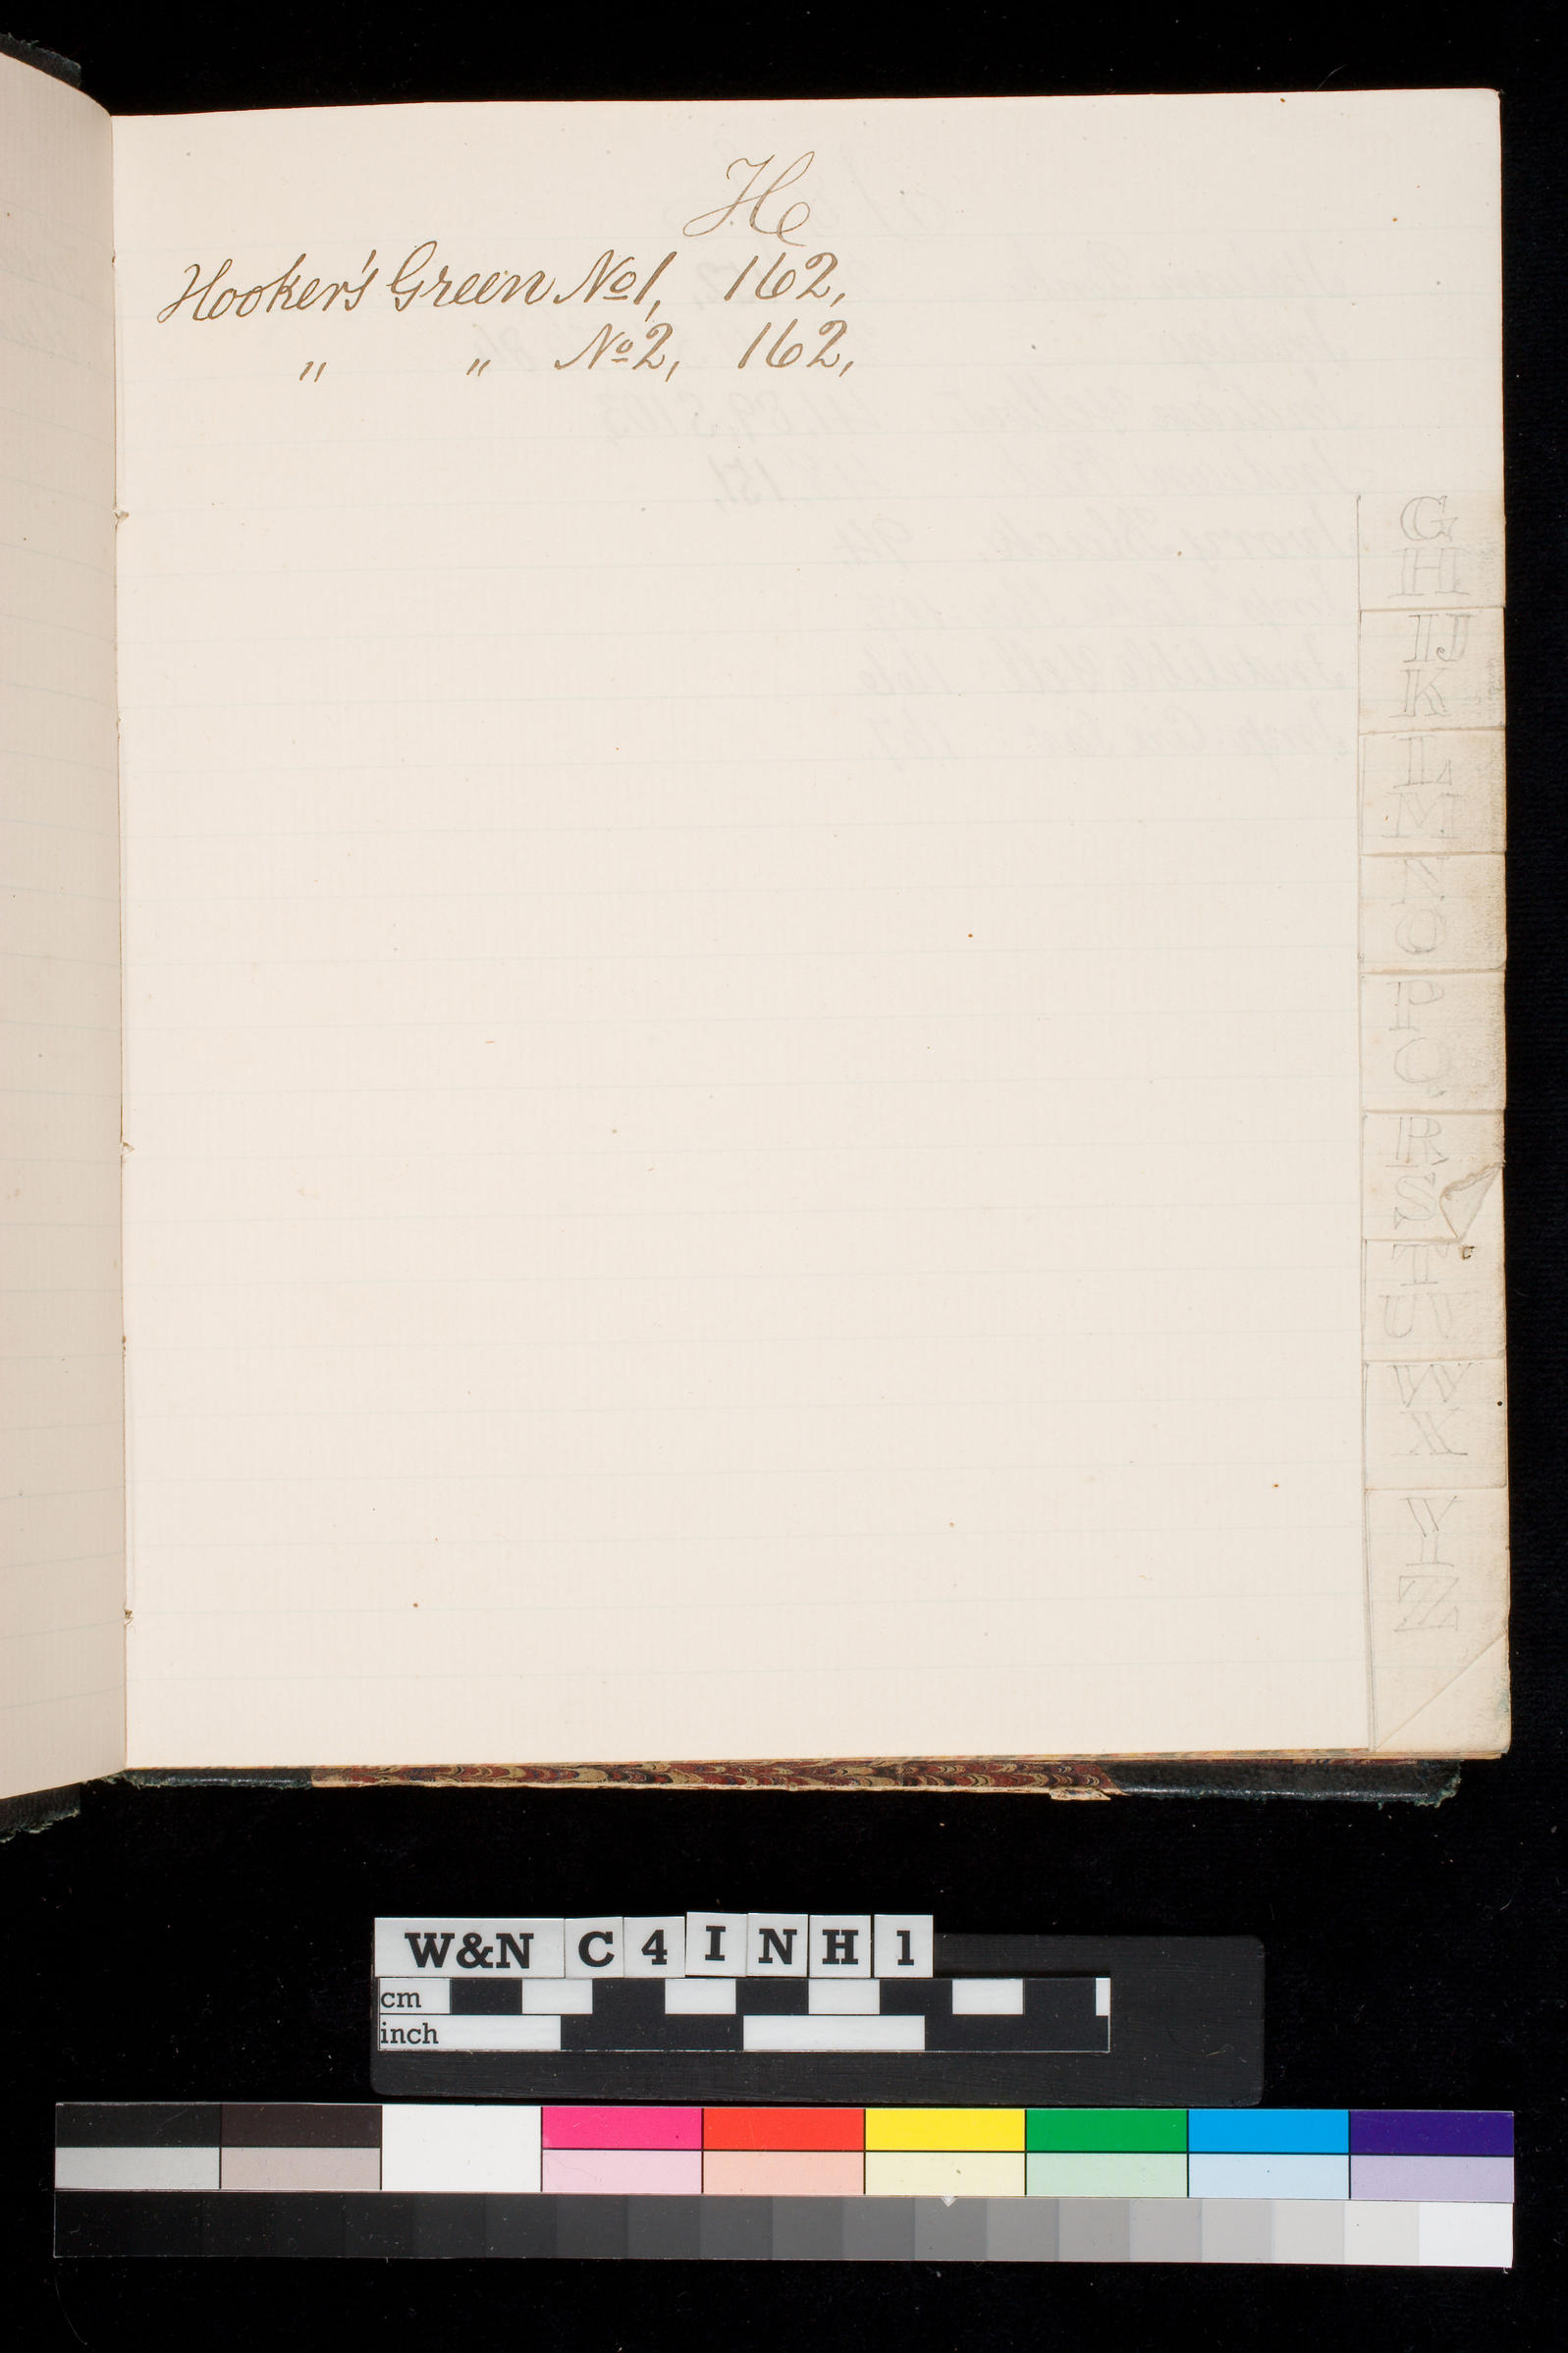 H
Hooker's Green No 1, 162,
" " No 2, 162,
G
H
IJ
K
L
M
N
O
P
Q
R
S
T
UV
W
X
Y
Z
W&N C 4 I N H 1
cm
inch